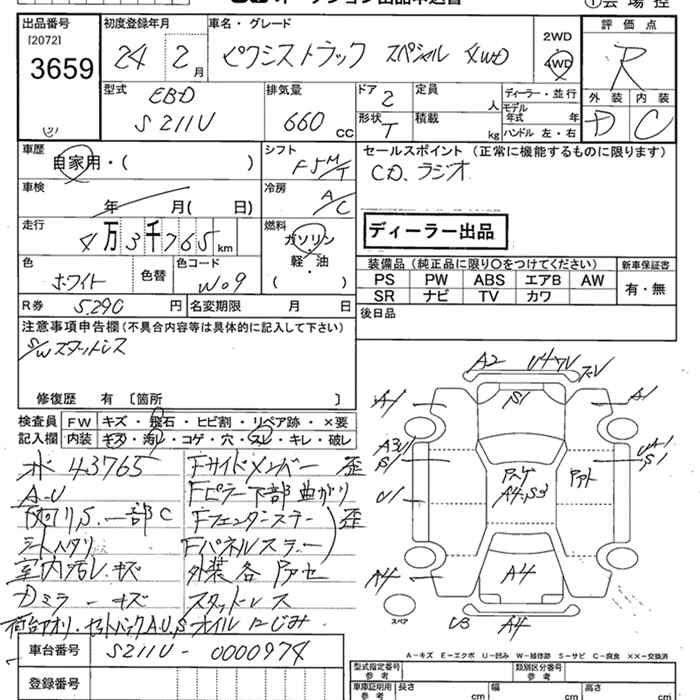 出品番号
[2072]
3659
初度登録年月
24 2 月
車名・グレード
ピクシストラック スペシャル 4WD
2WD
4WD
評価点
R
外装 内装
D C
型式
EBD
S211U
排気量
660 CC
ドア 2
形状 T
定員 人
積載 kg
ディーラー・並行
モデル
年式 年
ハンドル 左・右
車歴
自家用・( )
シフト
F5 M/T
セールスポイント (正常に機能するものに限ります)
CD、ラジオ
車検
年 月( 日)
冷房
A/C
走行
4万3千765 km
燃料
ガソリン
軽・油
( ・ )
ディーラー出品
色
ホワイト
色替
色コード
W09
装備品 (純正品に限り〇をつけてください)
新車保証書
PS PW ABS エアB AW
SR ナビ TV カワ
有・無
R券 5,290 円
名変期限 月 日
後日品
注意事項申告欄(不具合内容等は具体的に記入して下さい)
S/Wスタットレス
修復歴 有 〔箇所 〕
検査員
記入欄
FW キズ・飛石・ヒビ割・リペア跡・×要
内装 キズ・汚レ・コゲ・穴・スレ・キレ・破レ
43765
Fサイドメンバー 歪
A.U
Fピラー下部曲がり
S.一部C
Fフェンダーステー
歪
Fパネルステー
室内汚レ キズ
外装各
Dミラーキズ
スタットレス
オイルにじみ
車台番号 S211U-0000974
登録番号
A2 U4
S1
A1
A1
S1
S1
U1
A4、S3
A4
A4
A4
U3
A4
スペア
A-キズ E-エクボ U-凹み W-補修跡 S-サビ C-腐食 ××-交換済
型式指定番号
参考
類別区分番号
参考
車庫証明用
参考
長さ cm
幅 cm
高さ cm